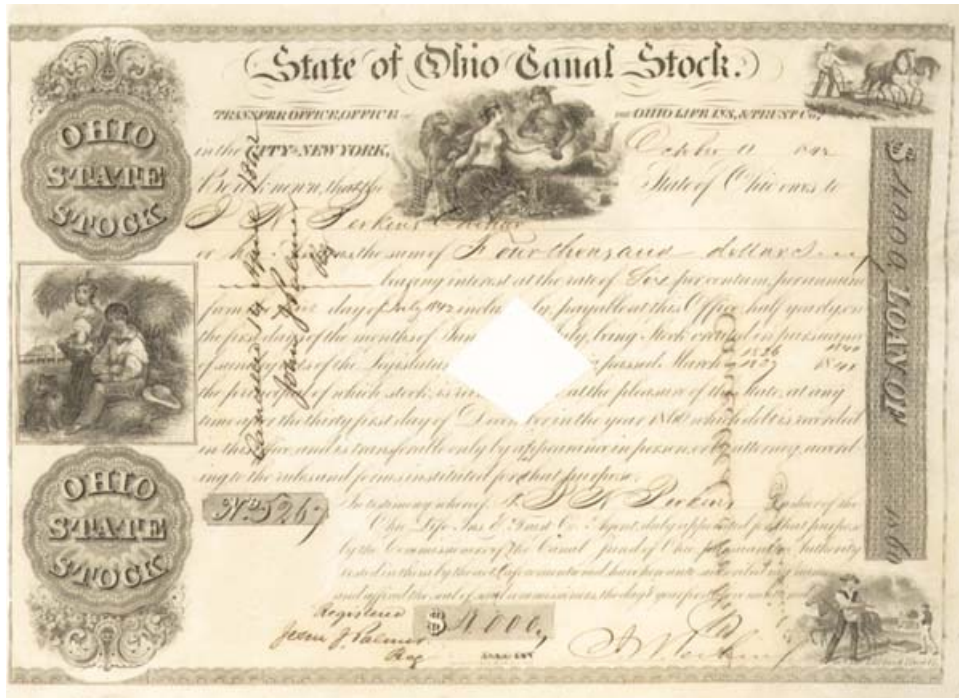 State of Ohio Canal Stock.
TRANSFER OFFICE, OFFICE OF
THE OHIO LIFE INS, & TRUST Co,
in the CITY of NEW YORK,
October 11 1842
Be it known, that the
State of Ohio owes to
J N Perkins Cashier
or the sum of Four thousand dollars
bearing interest at the rate of Six per centum, per annum
from day of July 1842 inclusively, payable at this Office, half yearly, on
the first days of the months of being Stock created in pursuance
of sundry acts of the Legislature passed March
the principal of which stock, is at the pleasure of the State, at any
time after the thirty first day of December in the year 1860 which debt is recorded
in this office, and is transferable only by appearance in person, or by attorney, accord-
ing to the rules and forms instituted for that purpose.
No. 5267
In testimony whereof I, J N Perkins Cashier of the
Ohio Life Ins. & Trust Co. Agent, duly appointed for that purpose
by the Commissioners of the Canal fund of Ohio, pursuant to Authority
vested in them by the acts aforementioned, have hereunto subscribed my name
and affixed the seal of said commissioners, the day & year first above mentioned
Registered
Jesse J. Palmer
Reg
$4,000
OHIO
STATE
STOCK
OHIO
STATE
STOCK
LOAN OF
1860
Cancelled 19 April 1862